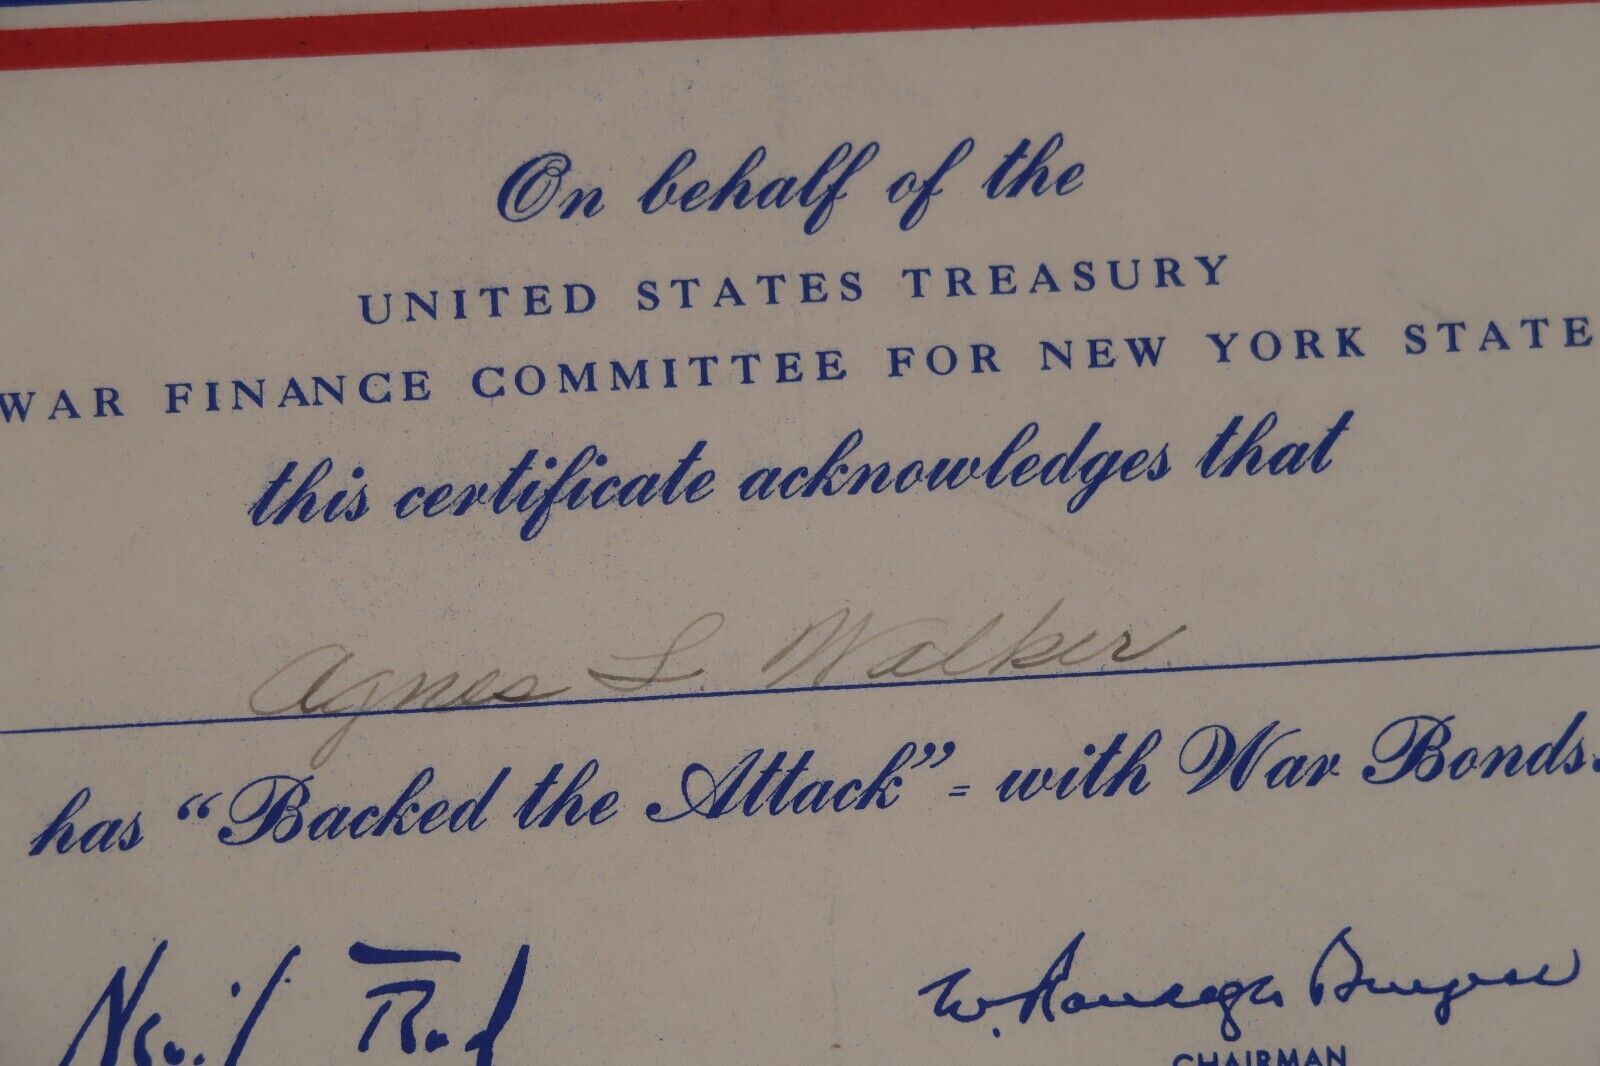 On behalf of the
UNITED STATES TREASURY
WAR FINANCE COMMITTEE FOR NEW YORK STATE
this certificate acknowledges that
Agnes L. Walker.
has "Backed the Attack" = with War Bonds.
W. Randolph Burgess
CHAIRMAN